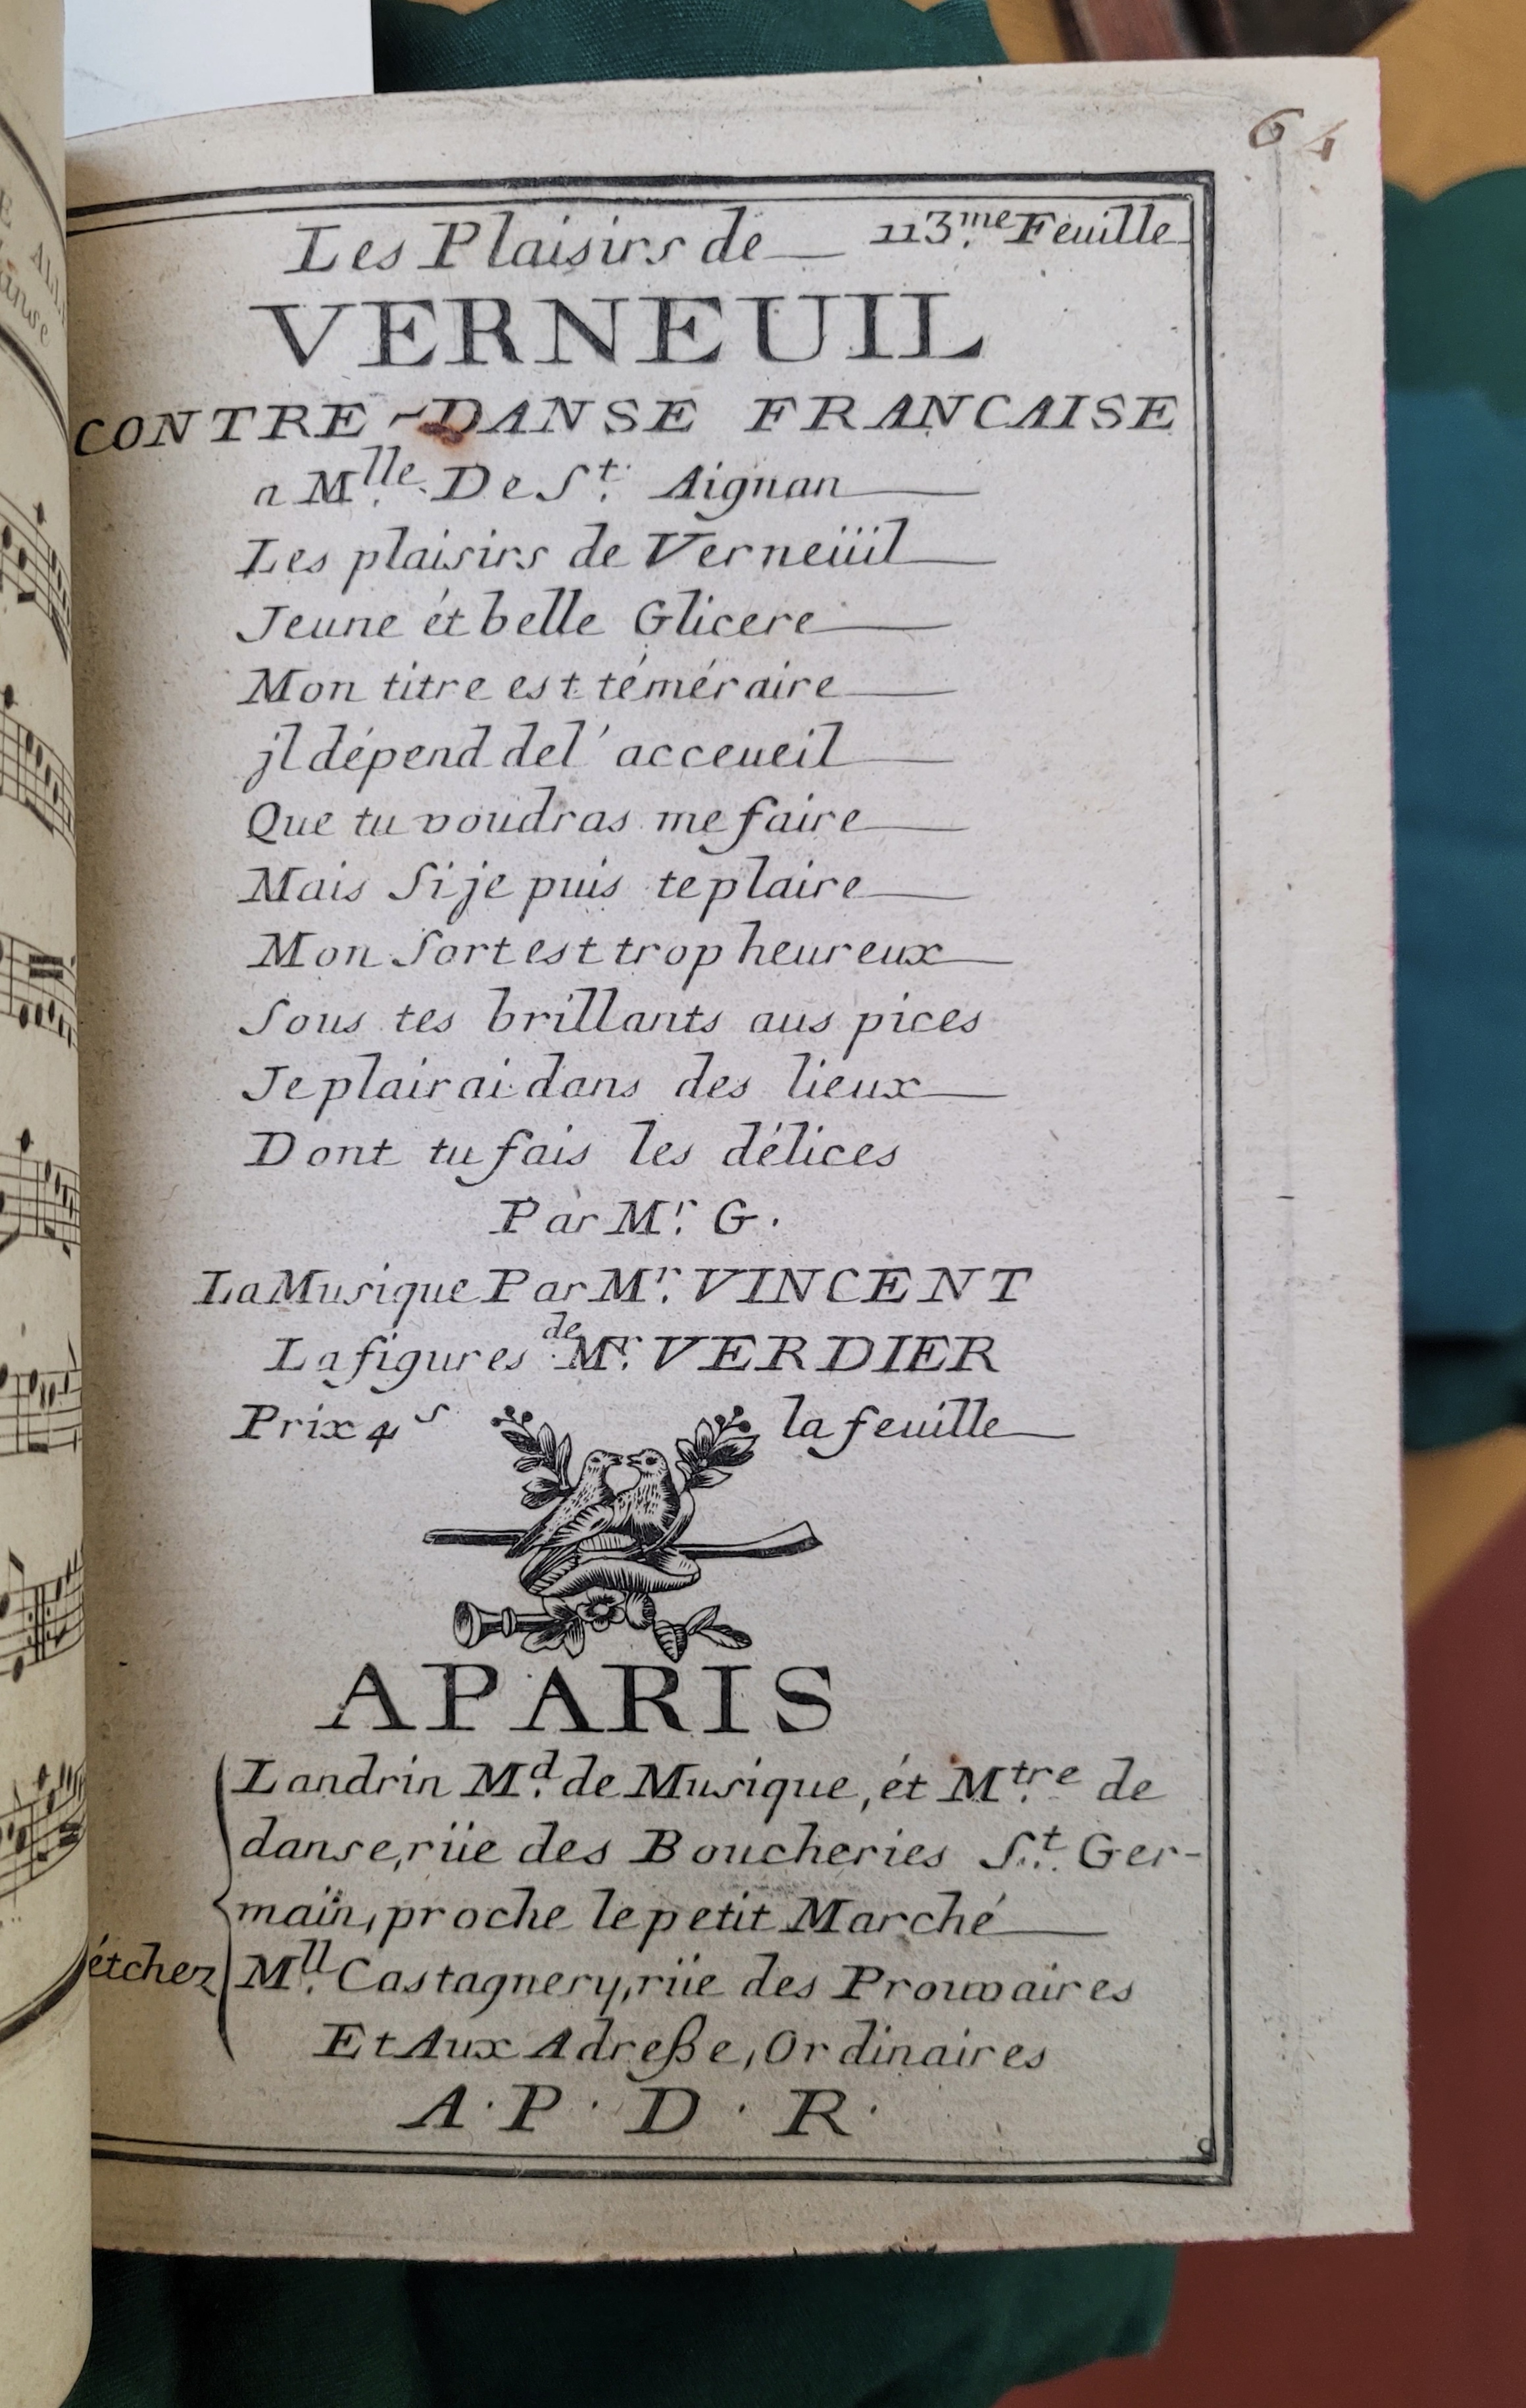 64
Les Plaisirs de 113.me Feuille
VERNEUIL
CONTRE-DANSE FRANCAISE
a M.lle De St. Aignan
Les plaisirs de Verneüil
Jeune ét belle Glicere
Mon titre est téméraire
jl dépend de l'acceueil
Que tu voudras me faire
Mais Si je puis te plaire
Mon Sort est trop heureux
Sous tes brillants auspices
Je plairai dans des lieux
Dont tu fais les délices
Par Mr. G.
La Musique Par Mr. VINCENT
La figures de Mr. VERDIER
Prix 4s la feuille
A PARIS
Landrin Md. de Musique, ét M.tre de
danse, rüe des Boucheries St. Ger-
maïn, proche le petit Marché
ét chez M.ll Castagnery, rüe des Prouvaires
Et Aux Adreße, Ordinaires
A. P. D. R.